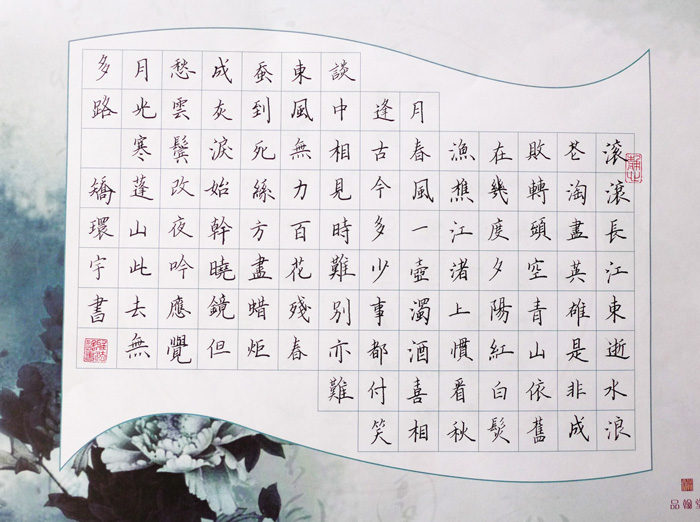 滚滾長江東逝水浪
花淘盡英雄是非成
敗轉頭空青山依舊
在幾度夕陽紅白髮
漁樵江渚上慣看秋
月春風一壺濁酒喜相
逢古今多少事都付笑
談中相見時難別亦難
東風無力百花殘春
蚕到死絲方盡蜡炬
成灰淚始幹曉鏡但
愁雲鬢改夜吟應覺
月光寒蓬山此去無
多路 矯環宇書